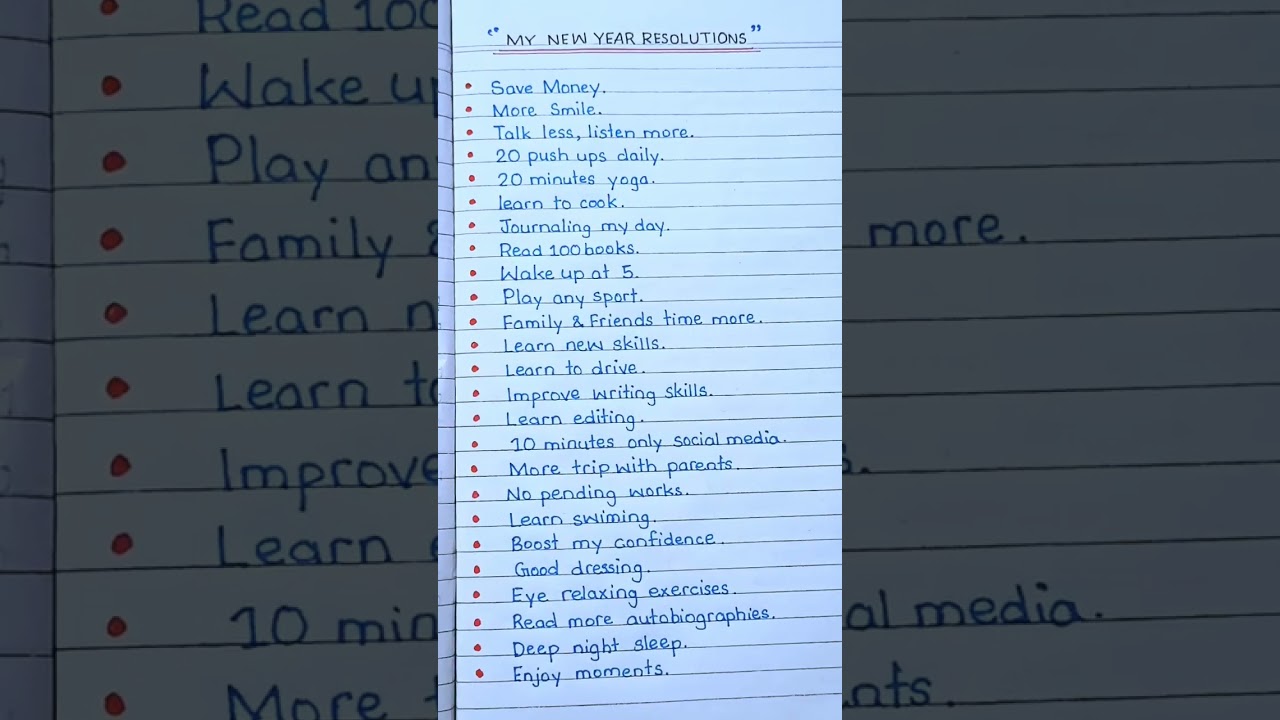 “ MY NEW YEAR RESOLUTIONS ”
• Save Money.
• More Smile.
• Talk less, listen more.
• 20 push ups daily.
• 20 minutes yoga.
• learn to cook.
• Journaling my day.
• Read 100 books.
• Wake up at 5.
• Play any sport.
• Family & Friends time more.
• Learn new skills.
• Learn to drive.
• Improve writing skills.
• Learn editing.
• 10 minutes only social media.
• More trip with parents.
• No pending works.
• Learn swiming.
• Boost my confidence.
• Good dressing.
• Eye relaxing exercises.
• Read more autobiographies.
• Deep night sleep.
• Enjoy moments.